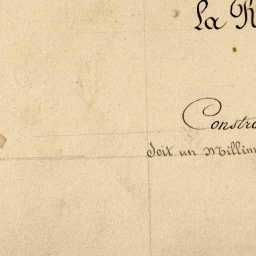 la R
Constr
Soit un Millim